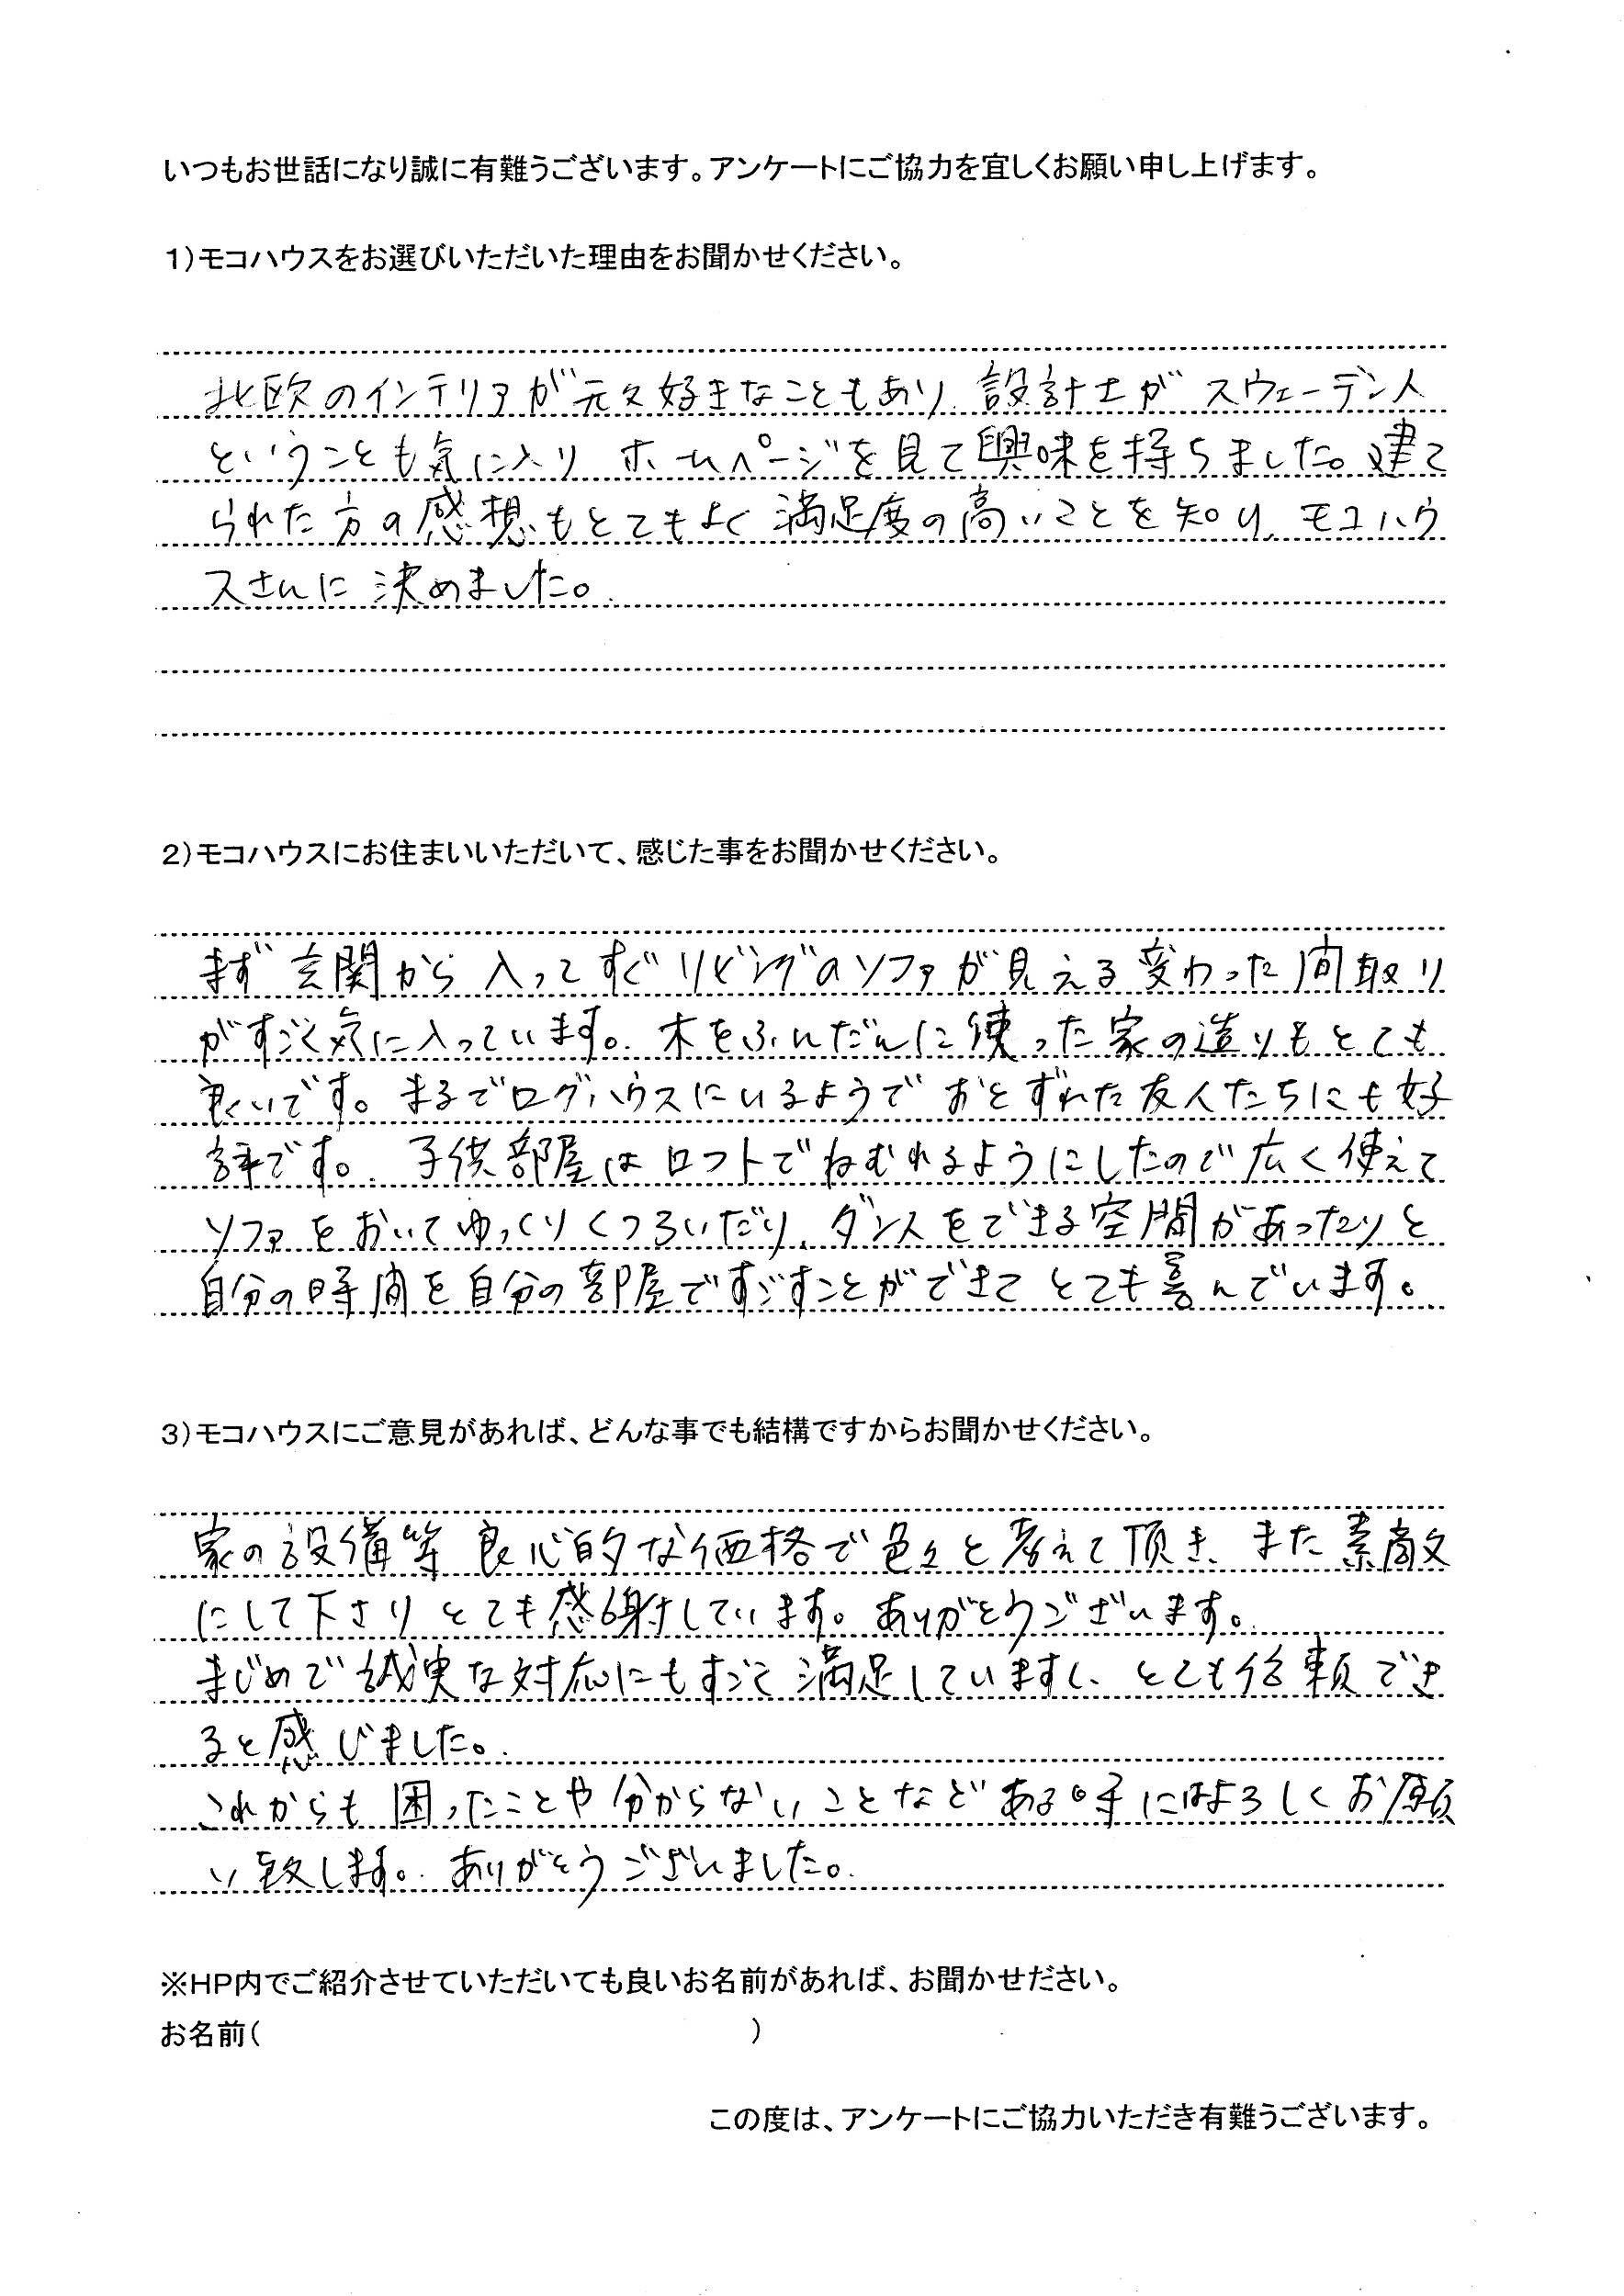 いつもお世話になり誠に有難うございます。アンケートにご協力を宜しくお願い申し上げます。
1)モコハウスをお選びいただいた理由をお聞かせください。
北欧のインテリアが元々好きなこともあり、設計士がスウェーデン人
ということも気に入り ホームページを見て興味を持ちました。建て
られた方の感想もとてもよく満足度の高いことを知り、モコハウ
スさんに決めました。
2)モコハウスにお住まいいただいて、感じた事をお聞かせください。
まず玄関から入ってすぐリビングのソファが見える変わった間取り
がすごく気に入っています。木をふんだんに使った家の造りもとても
良いです。まるでログハウスにいるようで おとずれた友人たちにも好
評です。子供部屋はロフトでねむれるようにしたので広く使えて
ソファをおいてゆっくりくつろいだり、ダンスをできる空間があったりと
自分の時間を自分の部屋ですごすことができて とても喜んでいます。
3)モコハウスにご意見があれば、どんな事でも結構ですからお聞かせください。
家の設備等 良心的な価格で色々と考えて頂き、また素敵
にして下さり とても感謝しています。ありがとうございます。
まじめで誠実な対応にもすごく満足していますし、とても信頼でき
ると感じました。
これからも困ったことや分からないことなどある時にはよろしくお願
い致します。ありがとうございました。
※HP内でご紹介させていただいても良いお名前があれば、お聞かせださい。
お名前( )
この度は、アンケートにご協力いただき有難うございます。